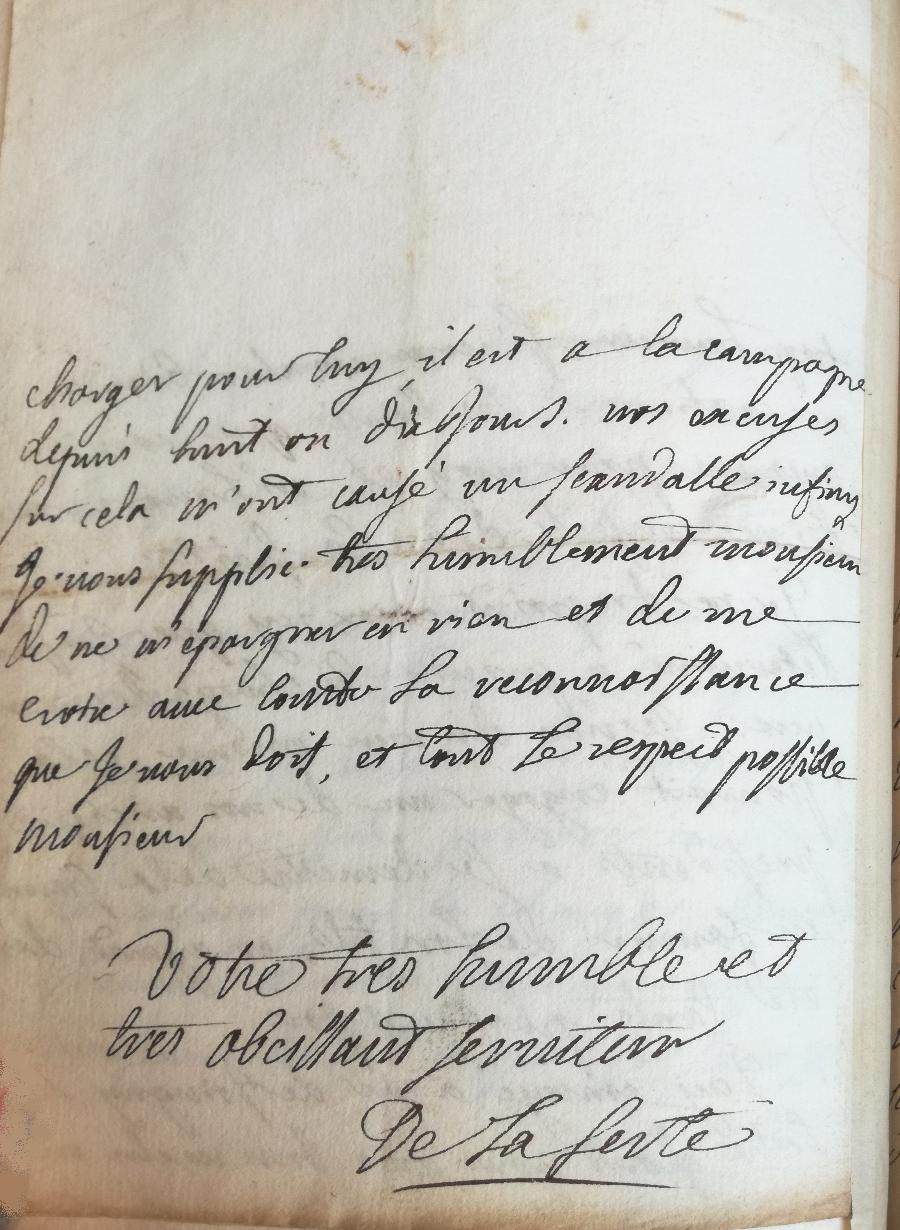 charger pour luy, il est a la campagne
depuis huit ou dix Jours. vos excuses
sur cela m'ont causé un scandalle infiny
Je vous supplie tres humblement monsieur
de ne m'épargner en rien et de me
croire avec toutte la reconnoissance
que Je vous doit, et tout le respect possible
monsieur
Votre tres humble et
tres obeissant serviteur
De La ferté